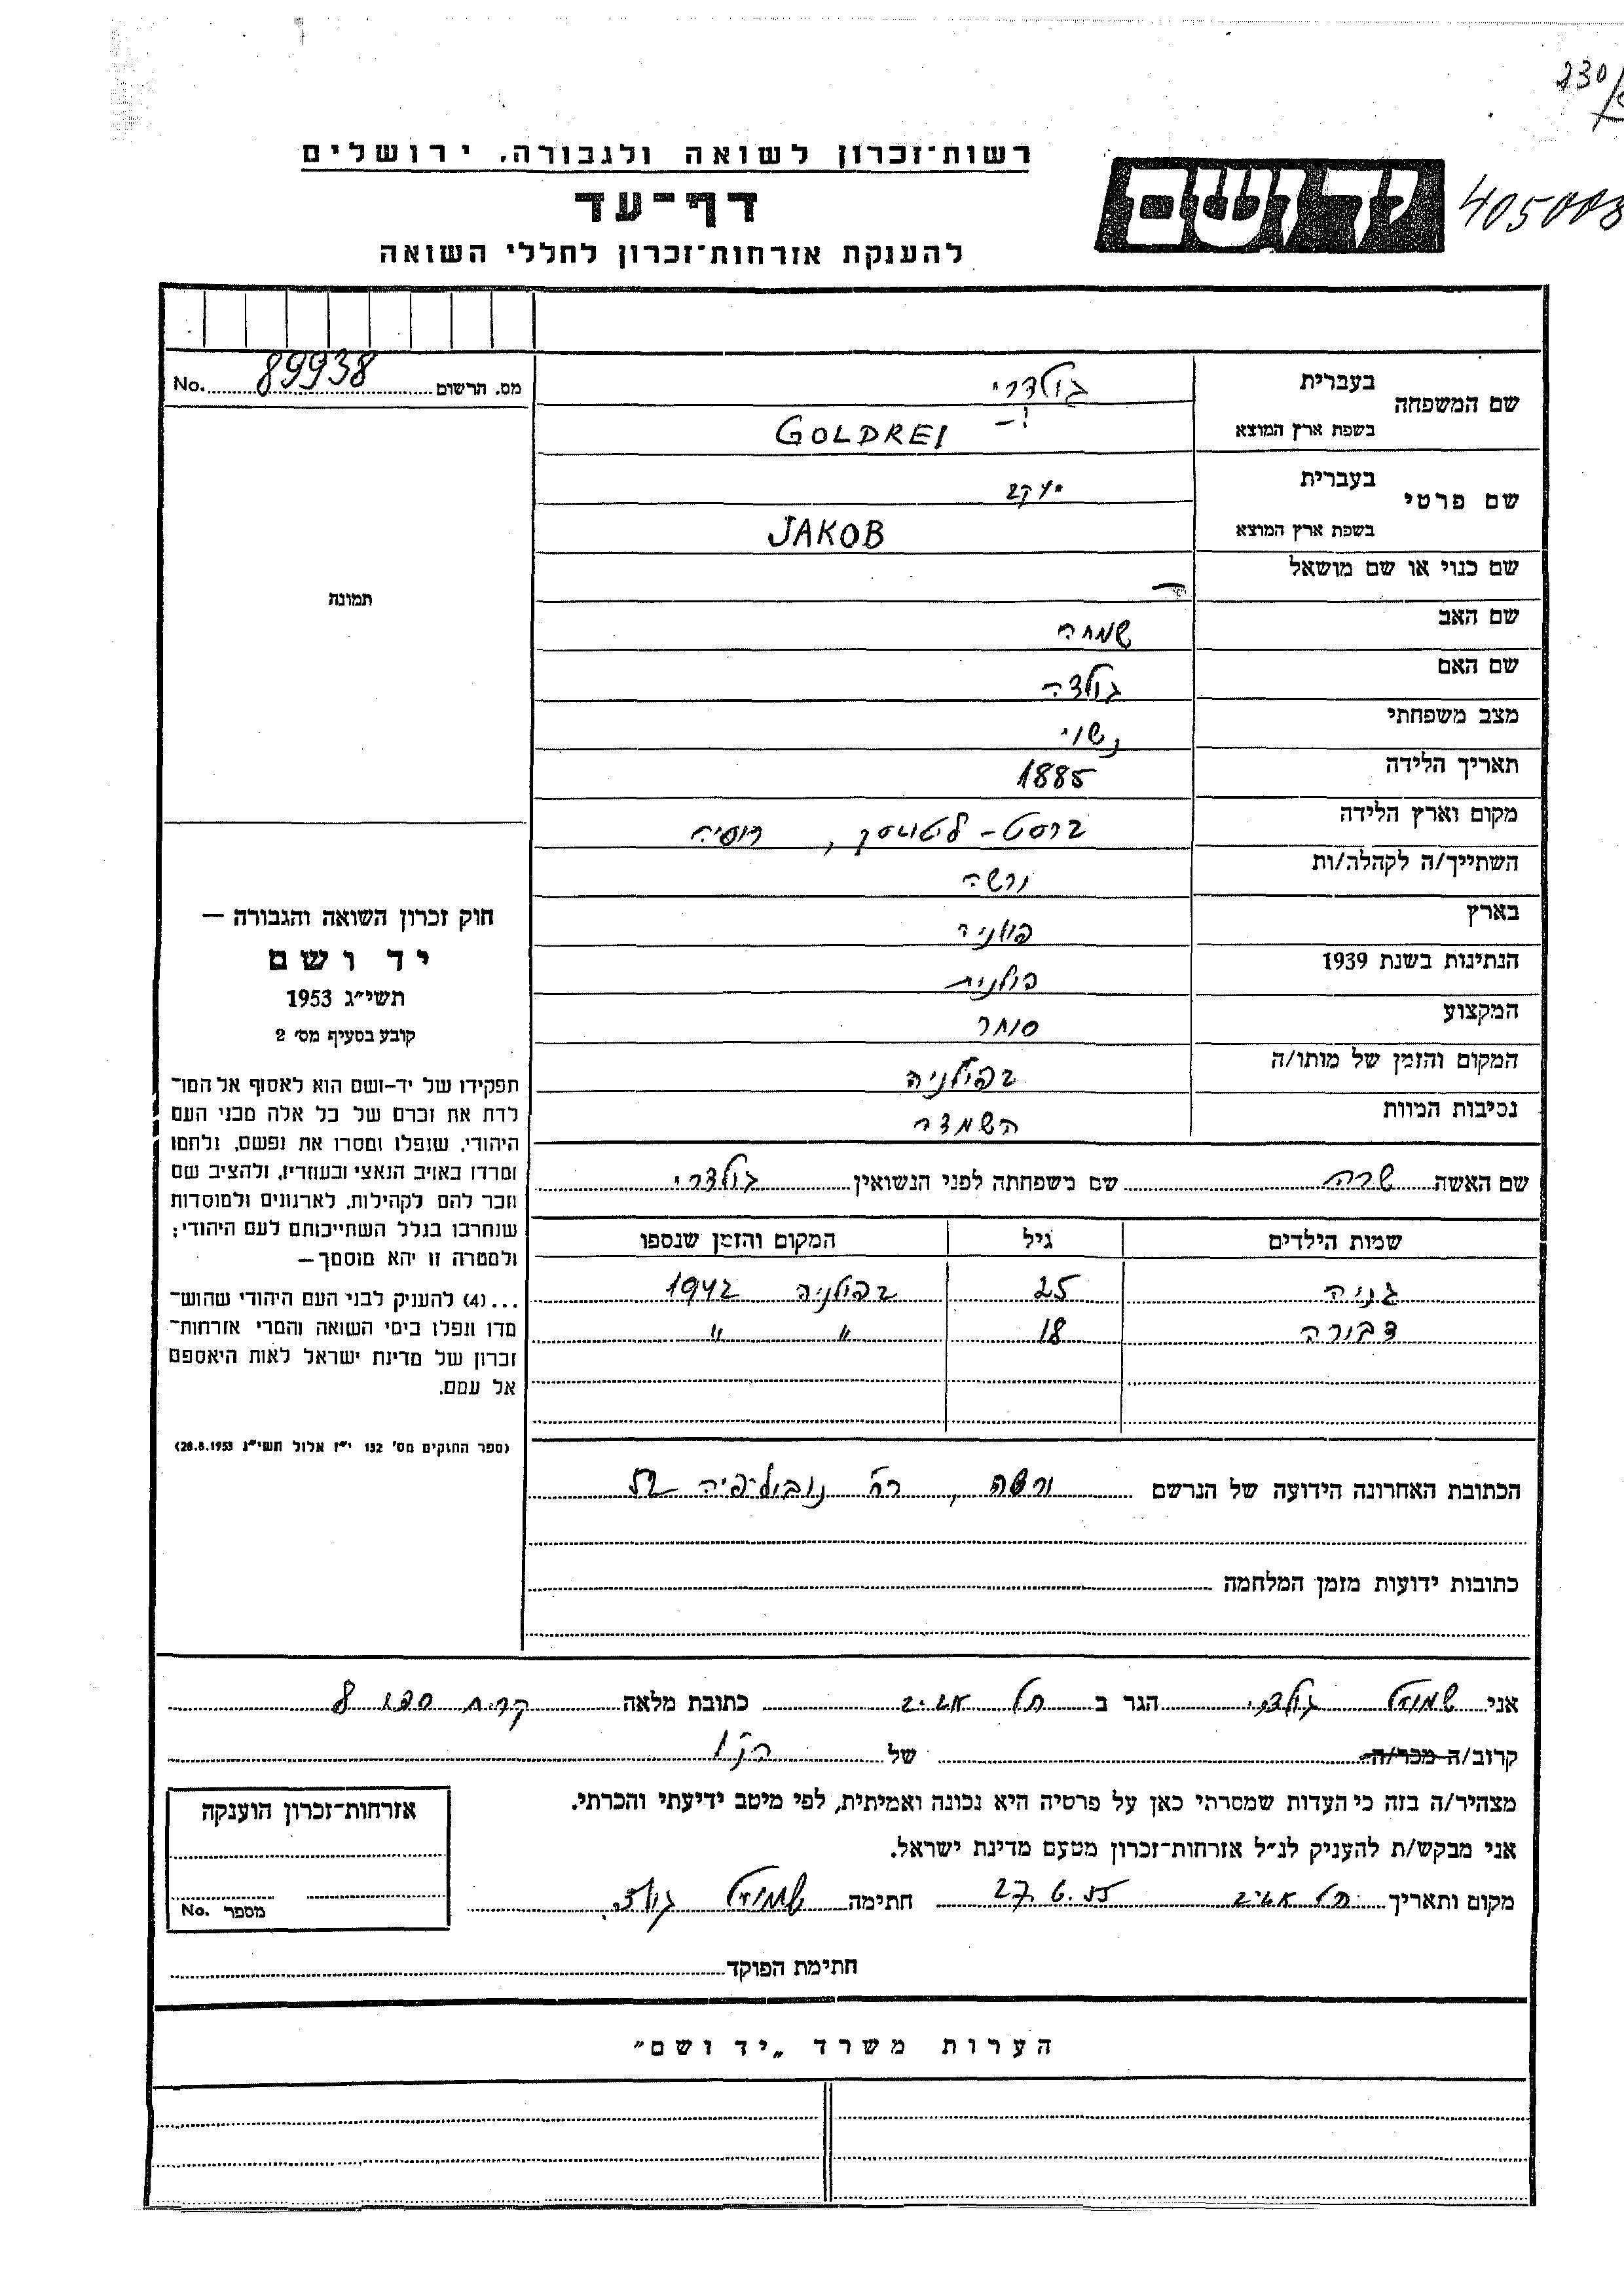 230/
405008
רשות־זכרון לשואה ולגבורה, ירושלים
דף־עד
להענקת אזרחות־זכרון לחללי השואה
יד ושם
מס. הרשום 89938 No.
שם המשפחה בעברית גולדרי
בשפת ארץ המוצא GOLDREI
שם פרטי בעברית יעקב
בשפת ארץ המוצא JAKOB
שם כנוי או שם מושאל —
שם האב שמחה
שם האם גולדה
מצב משפחתי נשוי
תאריך הלידה 1885
מקום וארץ הלידה ברסט-ליטווסק, רוסיה
השתייך/ה לקהלה/ות ורשה
בארץ פולניה
הנתינות בשנת 1939 פולנית
המקצוע סוחר
המקום והזמן של מותו/ה בפולניה
נסיבות המוות השמדה
תמונה
חוק זכרון השואה והגבורה —
יד ושם
תשי״ג 1953
קובע בסעיף מס׳ 2
תפקידו של יד-ושם הוא לאסוף אל המו־
לדת את זכרם של כל אלה מבני העם
היהודי, שנפלו ומסרו את נפשם, נלחמו
ומרדו באויב הנאצי ובעוזריו, ולהציב שם
וזכר להם לקהילות, לארגונים ולמוסדות
שנחרבו בגלל השתייכותם לעם היהודי;
ולמטרה זו יהא מוסמך—
...(4) להעניק לבני העם היהודי שהוש־
מדו ונפלו בימי השואה והמרי אזרחות־
זכרון של מדינת ישראל לאות היאספם
אל עמם.
(ספר החוקים מס׳ 132 י״ז אלול תשי״ג 28.8.1953)
שם האשה שרה שם משפחתה לפני הנשואין גולדרי
שמות הילדים גיל המקום והזמן שנספו
גניה 25 בפולניה 1942
דבורה 18 " "
הכתובת האחרונה הידועה של הנרשם ורשה, רח׳ נובוליפיה 52
כתובות ידועות מזמן המלחמה
אני שמואל גולדרי הגר ב תל אביב כתובת מלאה קרית ספר 8
קרוב/ה מכר/ה של הנ״ל
מצהיר/ה בזה כי העדות שמסרתי כאן על פרטיה היא נכונה ואמיתית, לפי מיטב ידיעתי והכרתי.
אני מבקש/ת להעניק לנ״ל אזרחות־זכרון מטעם מדינת ישראל.
מקום ותאריך תל אביב 27.6.55 חתימה שמואל
אזרחות־זכרון הוענקה
מספר No.
חתימת הפוקד
הערות משרד „יד ושם״